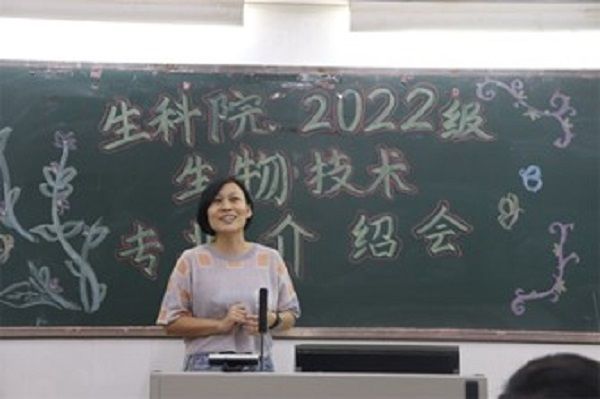 生科院 2022级
生物·技术
专业介绍会